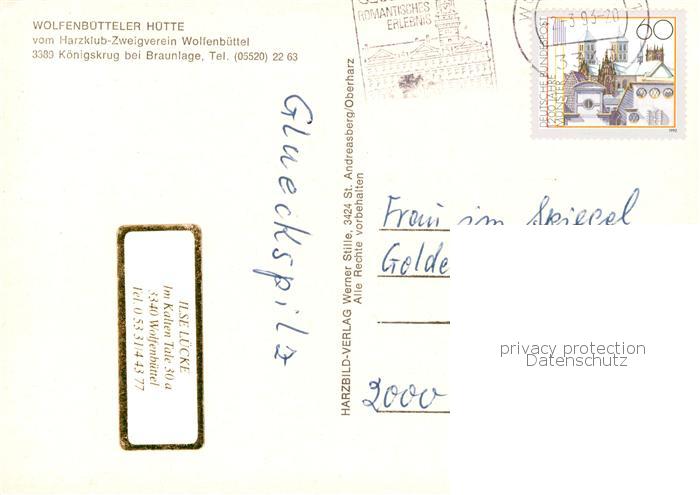 WOLFENBÜTTELER HÜTTE
vom Harzklub-Zweigverein Wolfenbüttel
3389 Königskrug bei Braunlage, Tel. (05520) 22 63
ROMANTISCHES
ERLEBNIS
3.93-20
60
DEUTSCHE BUNDESPOST
1200 JAHRE
MÜNSTER
1992
Glueckspilz
HARZBILD-VERLAG Werner Stille, 3424 St. Andreasberg/Oberharz
Alle Rechte vorbehalten
Frau im Spiegel
Golde
2000
ILSE LÜCKE
Im Kalten Tale 30 a
3340 Wolfenbüttel
Tel. 0 53 31/4 43 77
privacy protection
Datenschutz